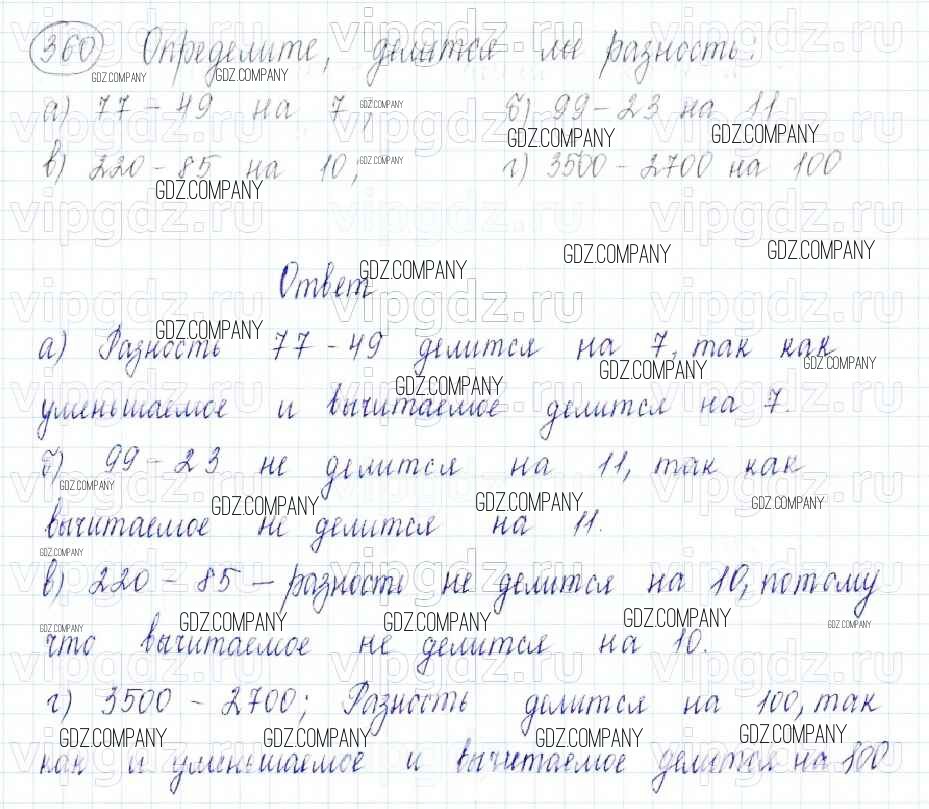 360 Определите, делится ли разность:
а) 77 - 49 на 7, б) 99 - 23 на 11
в) 220 - 85 на 10; г) 3500 - 2700 на 100
Ответ
а) Разность 77 - 49 делится на 7, так как
уменьшаемое и вычитаемое делится на 7.
б) 99 - 23 не делится на 11, так как
вычитаемое не делится на 11.
в) 220 - 85 – разность не делится на 10, потому
что вычитаемое не делится на 10.
г) 3500 - 2700; Разность делится на 100, так
как и уменьшаемое и вычитаемое делится на 100